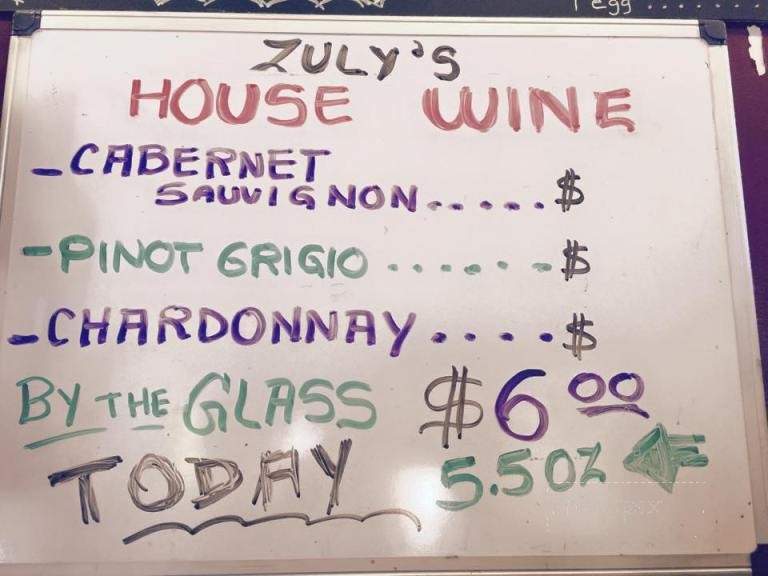 egg
ZULY'S
HOUSE WINE
- CABERNET
SAUVIGNON.....$
- PINOT GRIGIO ......$
- CHARDONNAY....$
BY THE GLASS $6 00
TODAY 5.50Z